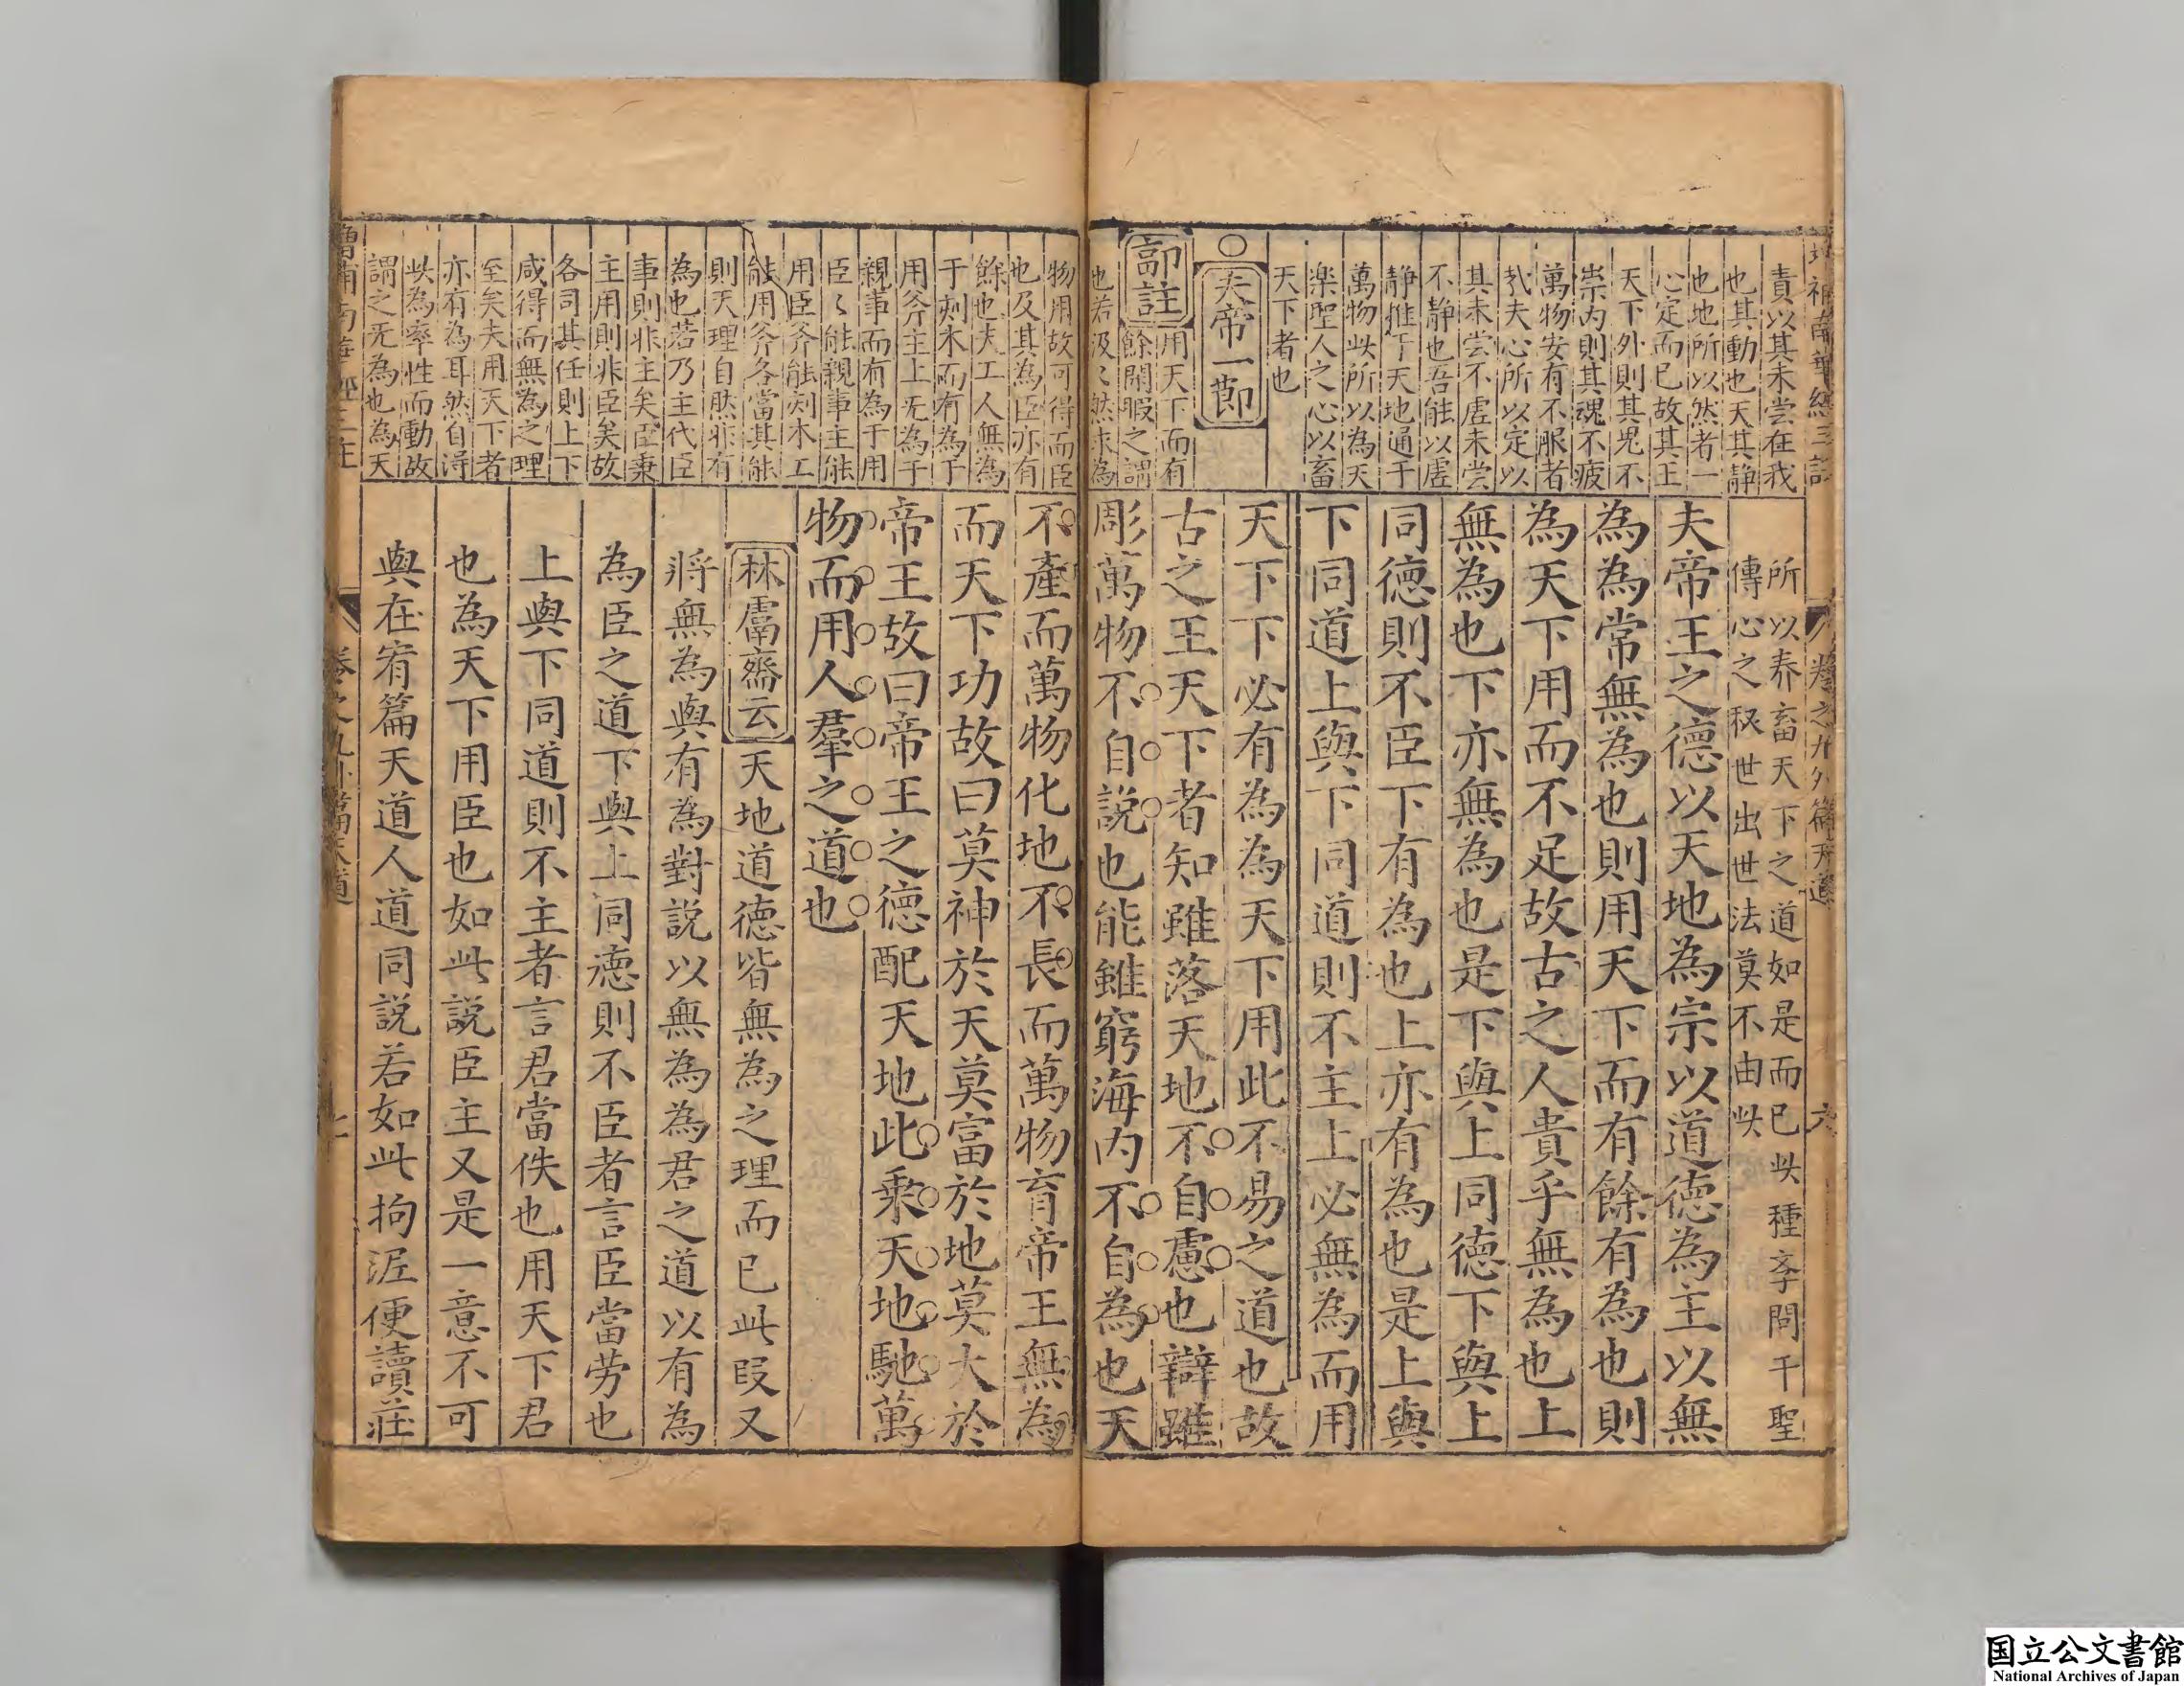 責以其未尝在我
也其動也天其静
也地所以然者一
心定而已故其王
天下外則其鬼不
崇内則其魂不疲
萬物安有不服者
㢤夫心所以定以
其未尝不虚未尝
不静也吾能以虚
静推于天地通于
萬物此所以為天
楽聖人之心以畜
天下者也
○夫帝一節
郭註
用天下而有
餘閑暇之謂
也若汲〻然未為
所以养畜天下之道如是而已此種孝問千聖
傳心之秘世出世法莫不由此
夫帝王之德以天地為宗以道德為主以無
為為常無為也則用天下而有餘有為也則
為天下用而不足故古之人貴乎無為也上
無為也下亦無為也是下與上同德下與上
同德則不臣下有為也上亦有為也是上與
下同道上與下同道則不主上必無為而用
天下下必有為為天下用此不易之道也故
古之王天下者知雖落天地不自慮也辯雖
彫萬物不自説也能雖窮海内不自為也天
卷之九外篇天道
六
物用故可得而臣
也及其為臣亦有
餘也夫工人無為
于刻木而有為于
用斧主上无為于
親事而有為于用
臣〻能親事主能
用臣斧能刻木工
能用斧各當其能
則天理自然非有
為也若乃主代臣
事則非主矣臣秉
主用則非臣矣故
各司其任則上下
咸得而無為之理
至矣夫用天下者
亦有為耳然自得
此為率性而動故
謂之无為也為天
不產而萬物化地不長而萬物育帝王無為
而天下功故曰莫神於天莫富於地莫大於
帝王故曰帝王之德配天地此乘天地馳萬
物而用人羣之道也
林鬳齋云
天地道德皆無為之理而已此叚又
將無為與有為對説以無為為君之道以有為
為臣之道下與上同德則不臣者言臣當劳也
上與下同道則不主者言君當佚也用天下君
也為天下用臣也如此説臣主又是一意不可
與在宥篇天道人道同説若如此拘泥便讀莊
国立公文書館
National Archives of Japan